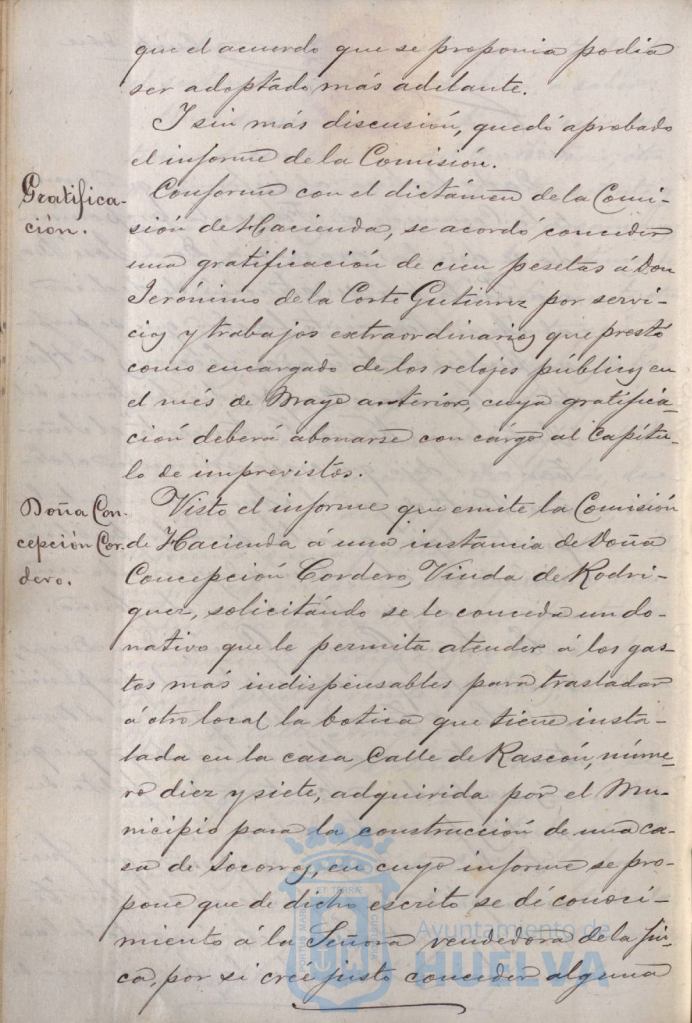 que el acuerdo que se proponia podia
ser adoptado más adelante.
I sin más discusión, quedó aprobado
el informe de la Comisión.
Gratifica-
ción.
Conforme con el dictámen de la Comi-
sión de Hacienda, se acordó conceder
una gratificación de cien pesetas á Don
Jerónimo de la Corte Gutierrez por servi-
cios y trabajos extraordinarios que prestó
como encargado de los relojes públicos en
el més de Mayo anterior, cuya gratifica-
ción deberá abonarse con cárgo al Capítu-
lo de imprevistos.
Doña Con-
cepción Cor-
dero.
Visto el informe que emite la Comisión
de Hacienda á una instancia de Doña
Concepción Cordero, Viuda de Rodri-
guez, solicitándo se le conceda un do-
nativo que le permita atender á los gas-
tos más indispensables para trasladar
á otro local la botica que tiene insta-
lada en la casa Calle de Rascón, núme-
ro diez y siete, adquirida por el Mu-
nicipio para la construcción de una ca-
sa de socorros, en cuyo informe se pro-
pone que de dicho escrito se dé conoci-
miento á la Señora vendedora de la fin-
ca, por si creé justo conceder alguna
Ayuntamiento de
HUELVA